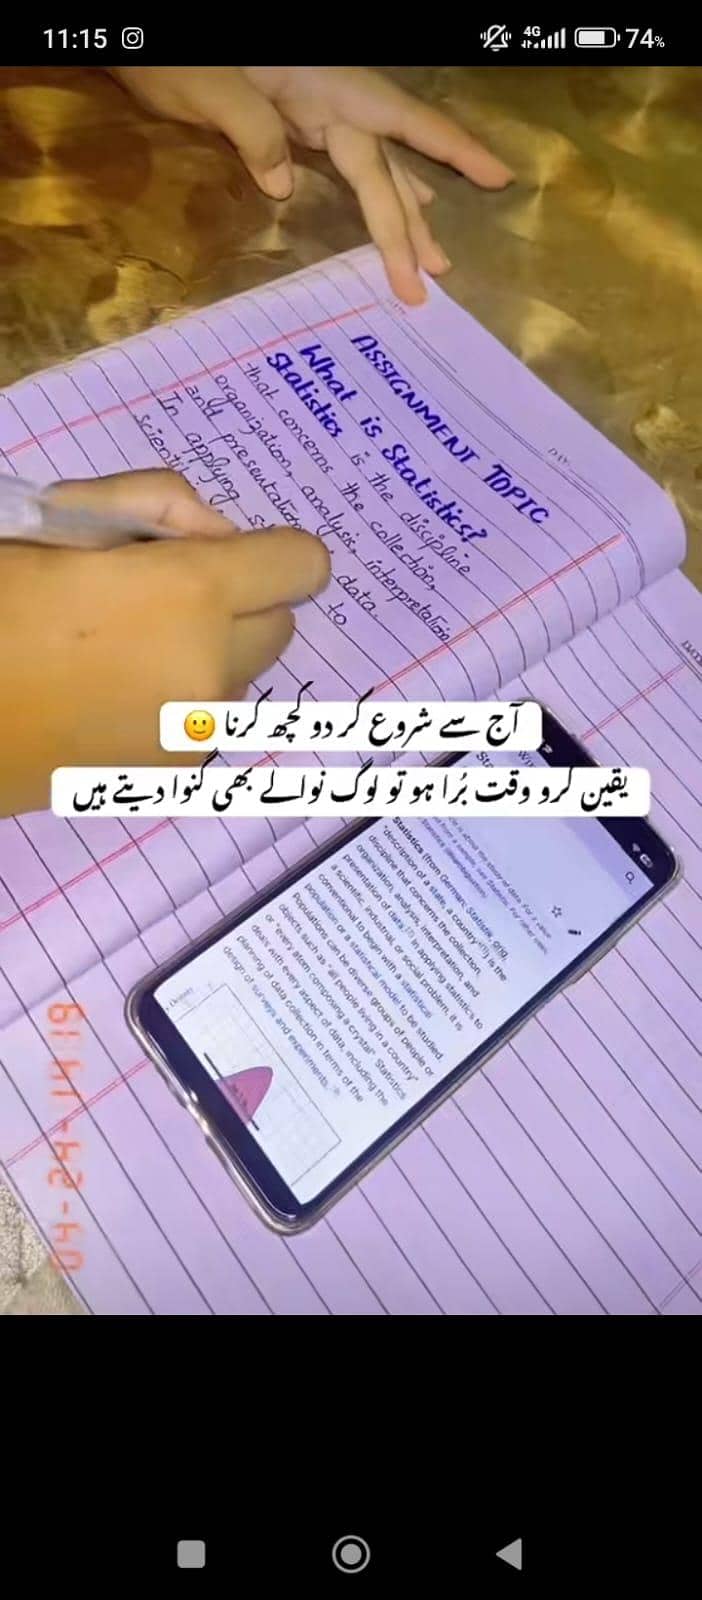 11:15
4G
74%
ASSIGNMENT TOPIC
What is Statistics?
Statistics is the discipline
that concerns the collection,
organization, analysis, interpretation
and presentation data.
In applying to
آج سے شروع کر دو کچھ کرنا 🙂
یقین کرو وقت بُرا ہو تو لوگ نوالے بھی گنوا دیتے ہیں
Statistics (from German: Statistik, orig.
"description of a state, a country") is the
discipline that concerns the collection,
organization, analysis, interpretation, and
presentation of data. In applying statistics to
a scientific, industrial, or social problem, it is
conventional to begin with a statistical
population or a statistical model to be studied.
Populations can be diverse groups of people or
objects such as "all people living in a country"
or "every atom composing a crystal". Statistics
deals with every aspect of data, including the
planning of data collection in terms of the
design of surveys and experiments.